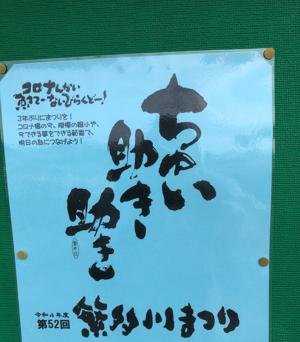 コロナんかい
負きてーないびらんどー!
3年ぶりにまつりを!
コロナ禍の今、規模の縮小や、
今できる事をできる範囲で、
明日の島につなげよう!
ちゅい
助きー
助き
令和4年度
第52回
繁多川まつり